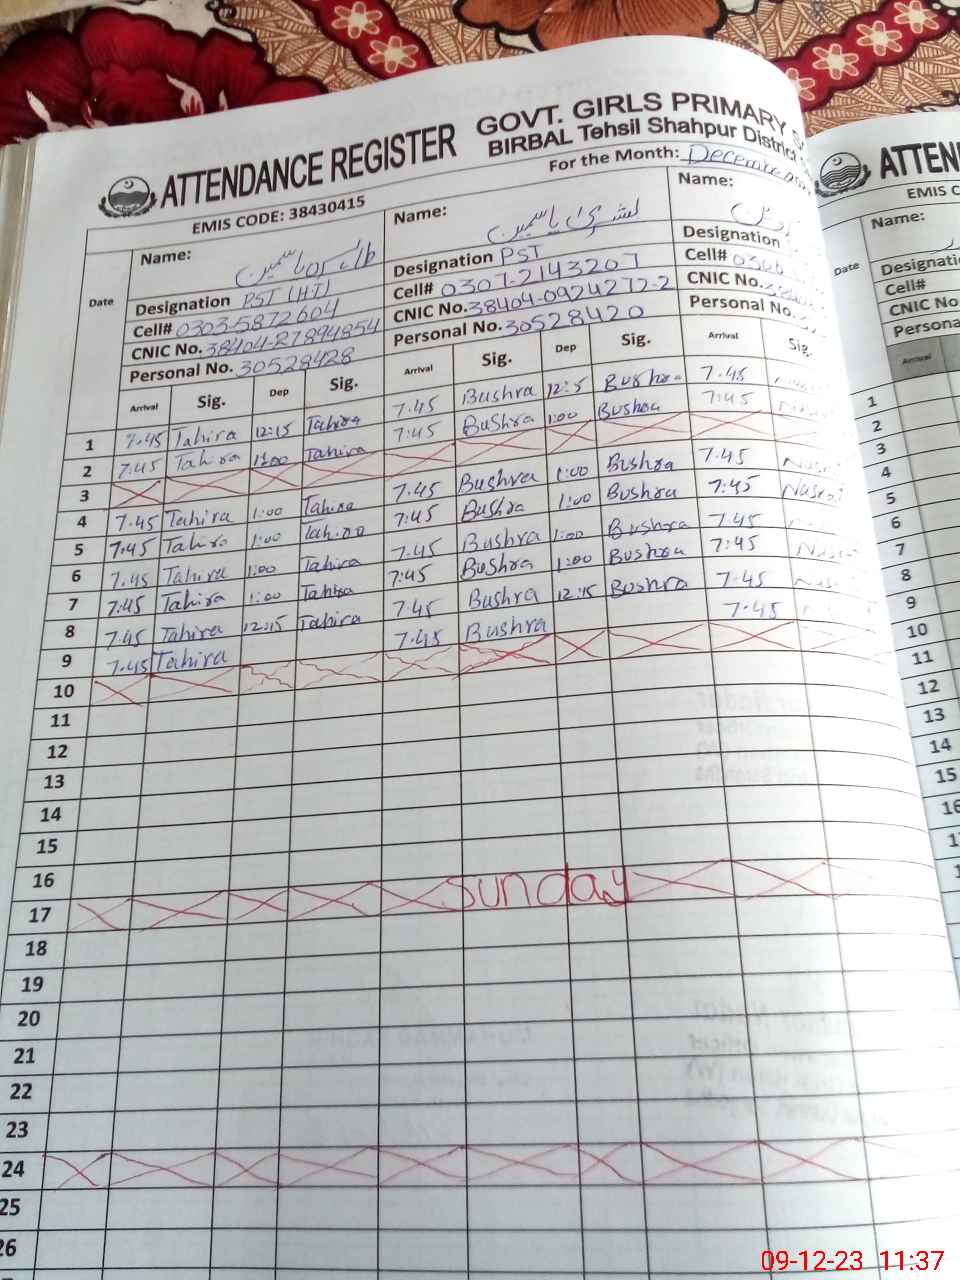 ATTENDANCE REGISTER GOVT. GIRLS PRIMARY
BIRBAL Tehsil Shahpur District
EMIS CODE: 38430415 For the Month: December
Date
Name: طاہرہ یاسمین
Designation PST (HT)
Cell# 0303-5872604
CNIC No. 38404-
Personal No. 30528428
Name: بشریٰ یاسمین
Designation PST
Cell# 0307-2143207
CNIC No. 38404-0924272-2
Personal No. 30528420
Name:
Designation
Cell#
CNIC No.
Personal No.
Arrival Sig. Dep Sig. Arrival Sig. Dep Sig. Arrival Sig.
1 7.45 Tahira 12:15 Tahira 7.45 Bushra 12:15 Bushra 7.45
2 7.45 Tahira 1:00 Tahira 7:45 Bushra 1:00 Bushra 7:45
3
4 7.45 Tahira 1:00 Tahira 7.45 Bushra 1:00 Bushra 7.45
5 7.45 Tahira 1:00 Tahira 7:45 Bushra 1:00 Bushra 7:45
6 7.45 Tahira 1:00 Tahira 7.45 Bushra 1:00 Bushra 7.45
7 7:45 Tahira 1:00 Tahira 7:45 Bushra 1:00 Bushra 7:45
8 7.45 Tahira 12:15 Tahira 7.45 Bushra 12:15 Bushra 7.45
9 7.45 Tahira 7.45 Bushra 7.45
10
11
12
13
14
15
16
17 Sunday
18
19
20
21
22
23
24
25
26
ATTEN
EMIS C
Name:
Date
Designati
Cell#
CNIC No
Persona
Arrival
1
2
3
4
5
6
7
8
9
10
11
12
13
14
15
16
09-12-23 11:37